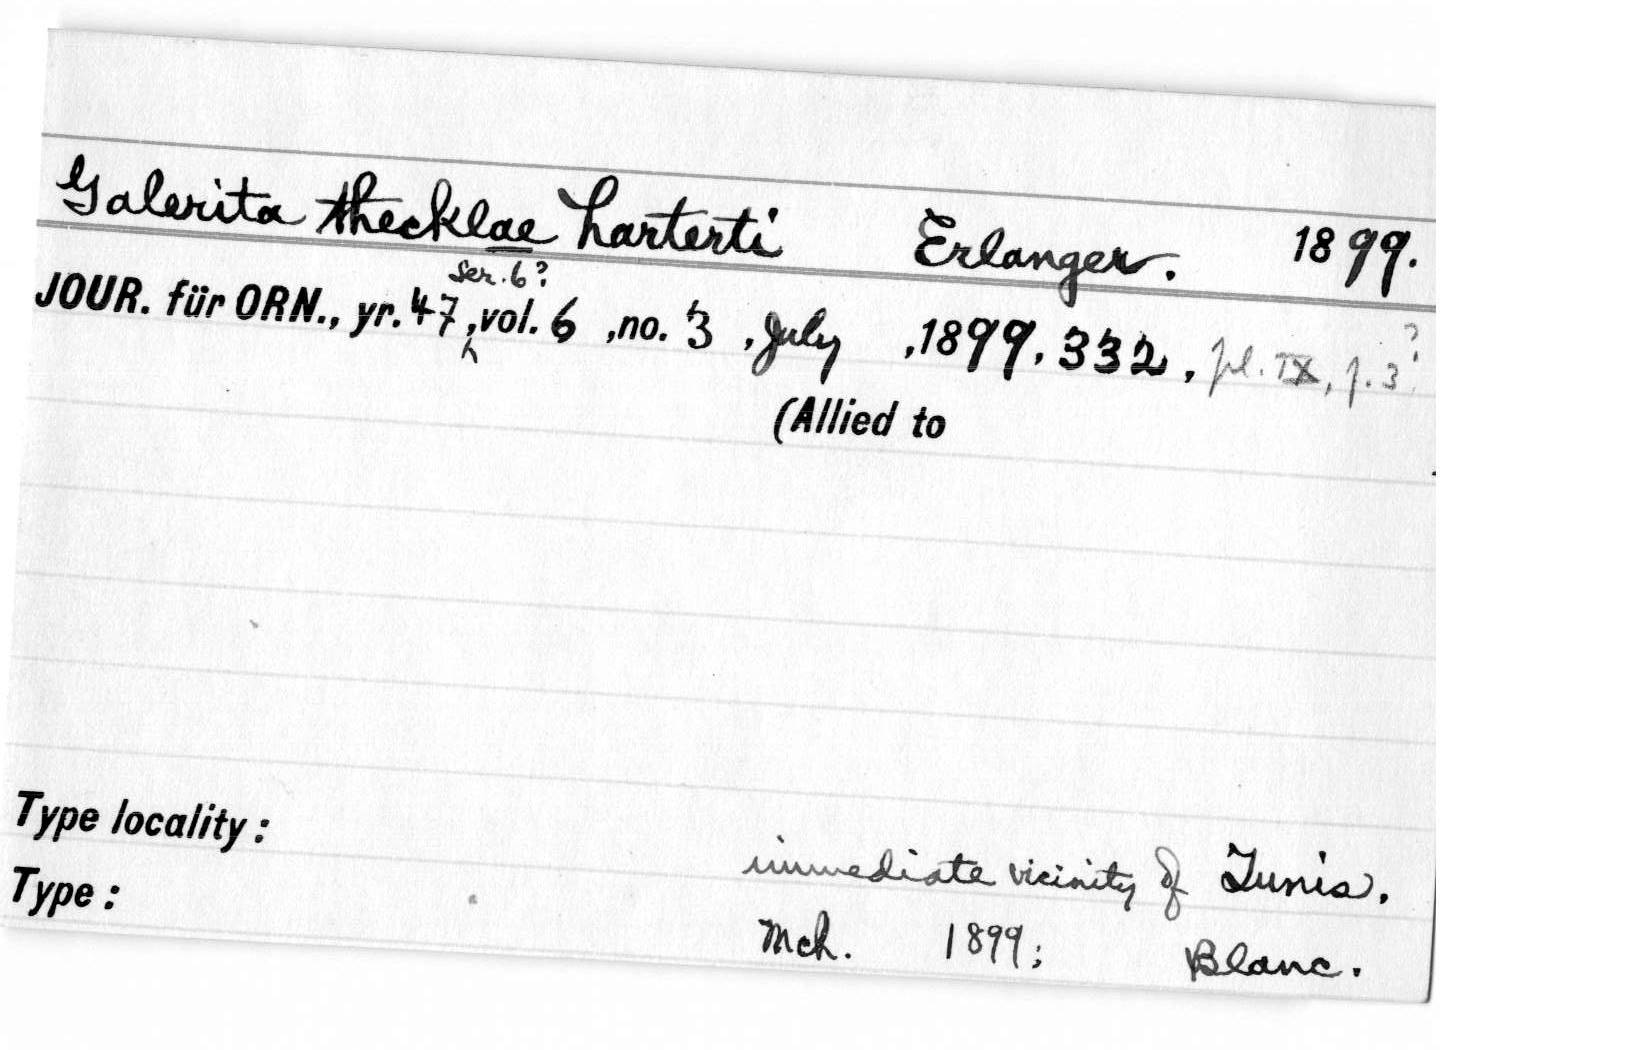 Galerita thecklae harterti Erlanger. 1899.
ser. 6?
JOUR. für ORN., yr. 47, vol. 6, no. 3, July, 1899, 332, pl. IX, f. 3?
(Allied to
Type locality: immediate vicinity of Tunis.
Type: Mch. 1899; Blanc.